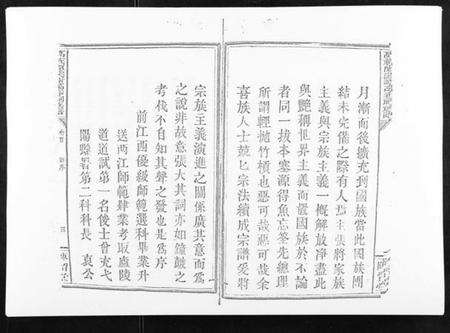 月漸而後擴充到國族當此國族團
結未完備之際有人焉主張將家族
主義與宗族主義一概解放淨盡此
與豔稱世界主義而置國族於不論
者同一拔本塞源得魚忘筌先總理
所謂輕拋竹槓也惡可哉惡可哉余
喜族人士競
宗法續成宗譜爰將
宗族主義演進之關係廣其意而為
之說非故意張大其詞亦如鐘鼓之
考伐不自知其聲之發也是為序
前江西優級師範選科畢業升
送兩江師範肄業考取廬陵
道道試第一名俊士曾充弋
陽縣署第二科科長 袁公